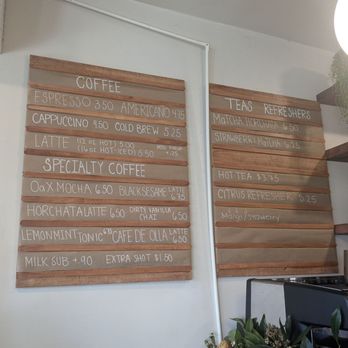 COFFEE
ESPRESSO 3.50 AMERICANO 4.25
CAPPUCCINO 4.50 COLD BREW 5.25
LATTE (12 OZ HOT) 5.00
(16 OZ HOT·ICED) 5.50
SPECIALTY COFFEE
OAX MOCHA 6.50 BLACK SESAME LATTE 6.75
HORCHATA LATTE 6.50 DIRTY VANILLA CHAI 6.50
LEMON MINT TONIC CAFE DE OLLA LATTE 6.50
MILK SUB +.90 EXTRA SHOT $1.50
TEAS REFRESHERS
MATCHA HORCHATA 6.50
STRAWBERRY MATCHA
HOT TEA $3.75
CITRUS REFRESHER 5.25